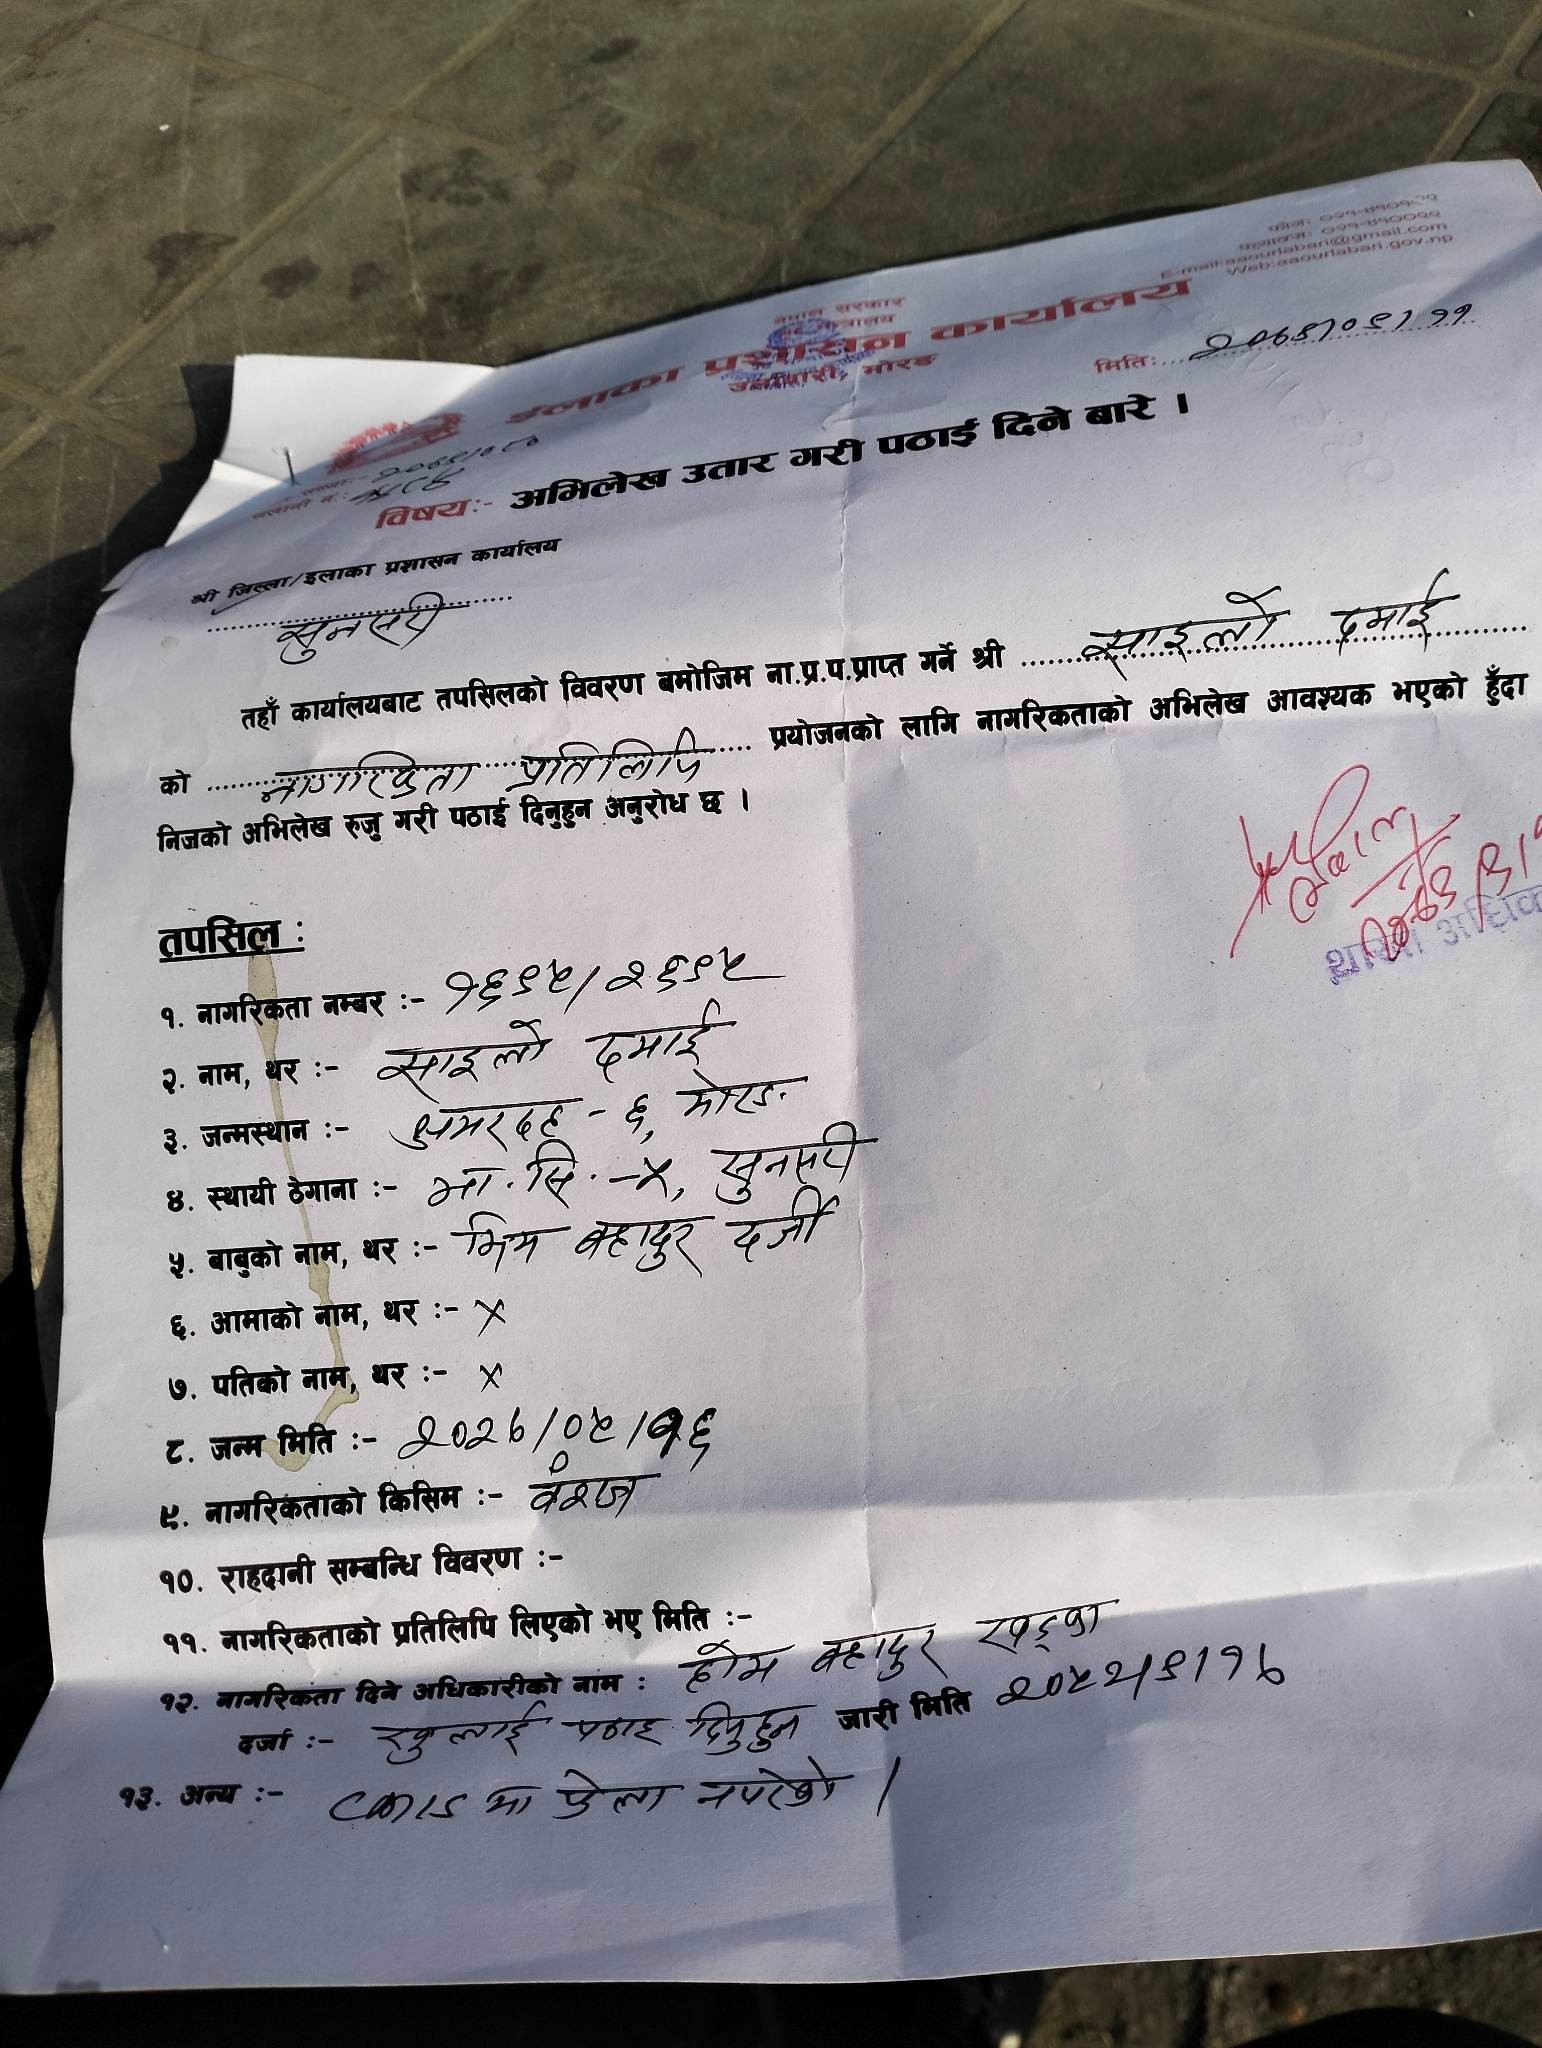 फोन: ०२१-५४०१९१
फ्याक्स: ०२१-५४००९९
E-mail:aaourlabari@gmail.com
Web:aaourlabari.gov.np
नेपाल सरकार
गृह मन्त्रालय
इलाका प्रशासन कार्यालय
उर्लाबारी, मोरङ
मिति: २०७९/०९/११
चलानी नं.:
विषय:- अभिलेख उतार गरी पठाई दिने बारे ।
श्री जिल्ला/इलाका प्रशासन कार्यालय
सुनसरी
तहाँ कार्यालयबाट तपसिलको विवरण बमोजिम ना.प्र.प.प्राप्त गर्ने श्री साइलो दमाई
को नागरिकता प्रतिलिपि प्रयोजनको लागि नागरिकताको अभिलेख आवश्यक भएको हुँदा
निजको अभिलेख रुजु गरी पठाई दिनुहुन अनुरोध छ ।
तपसिल :
१. नागरिकता नम्बर :- १६९५/२६९५
२. नाम, थर :- साइलो दमाई
३. जन्मस्थान :- अमरदह - ६, मोरङ
४. स्थायी ठेगाना :- भा.सि.-५, सुनसरी
५. बाबुको नाम, थर :- भिम बहादुर दर्जी
६. आमाको नाम, थर :- X
७. पतिको नाम, थर :- X
८. जन्म मिति :- २०२७/०५/१६
९. नागरिकताको किसिम :- वंशज
१०. राहदानी सम्बन्धि विवरण :-
११. नागरिकताको प्रतिलिपि लिएको भए मिति :-
१२. नागरिकता दिने अधिकारीको नाम : होम बहादुर खड्का
दर्जा :- पठाइ दिनुहुन जारी मिति २०५२/९/१७
१३. अन्य :- मा फेला नपरेको ।
शाखा अधिकृ